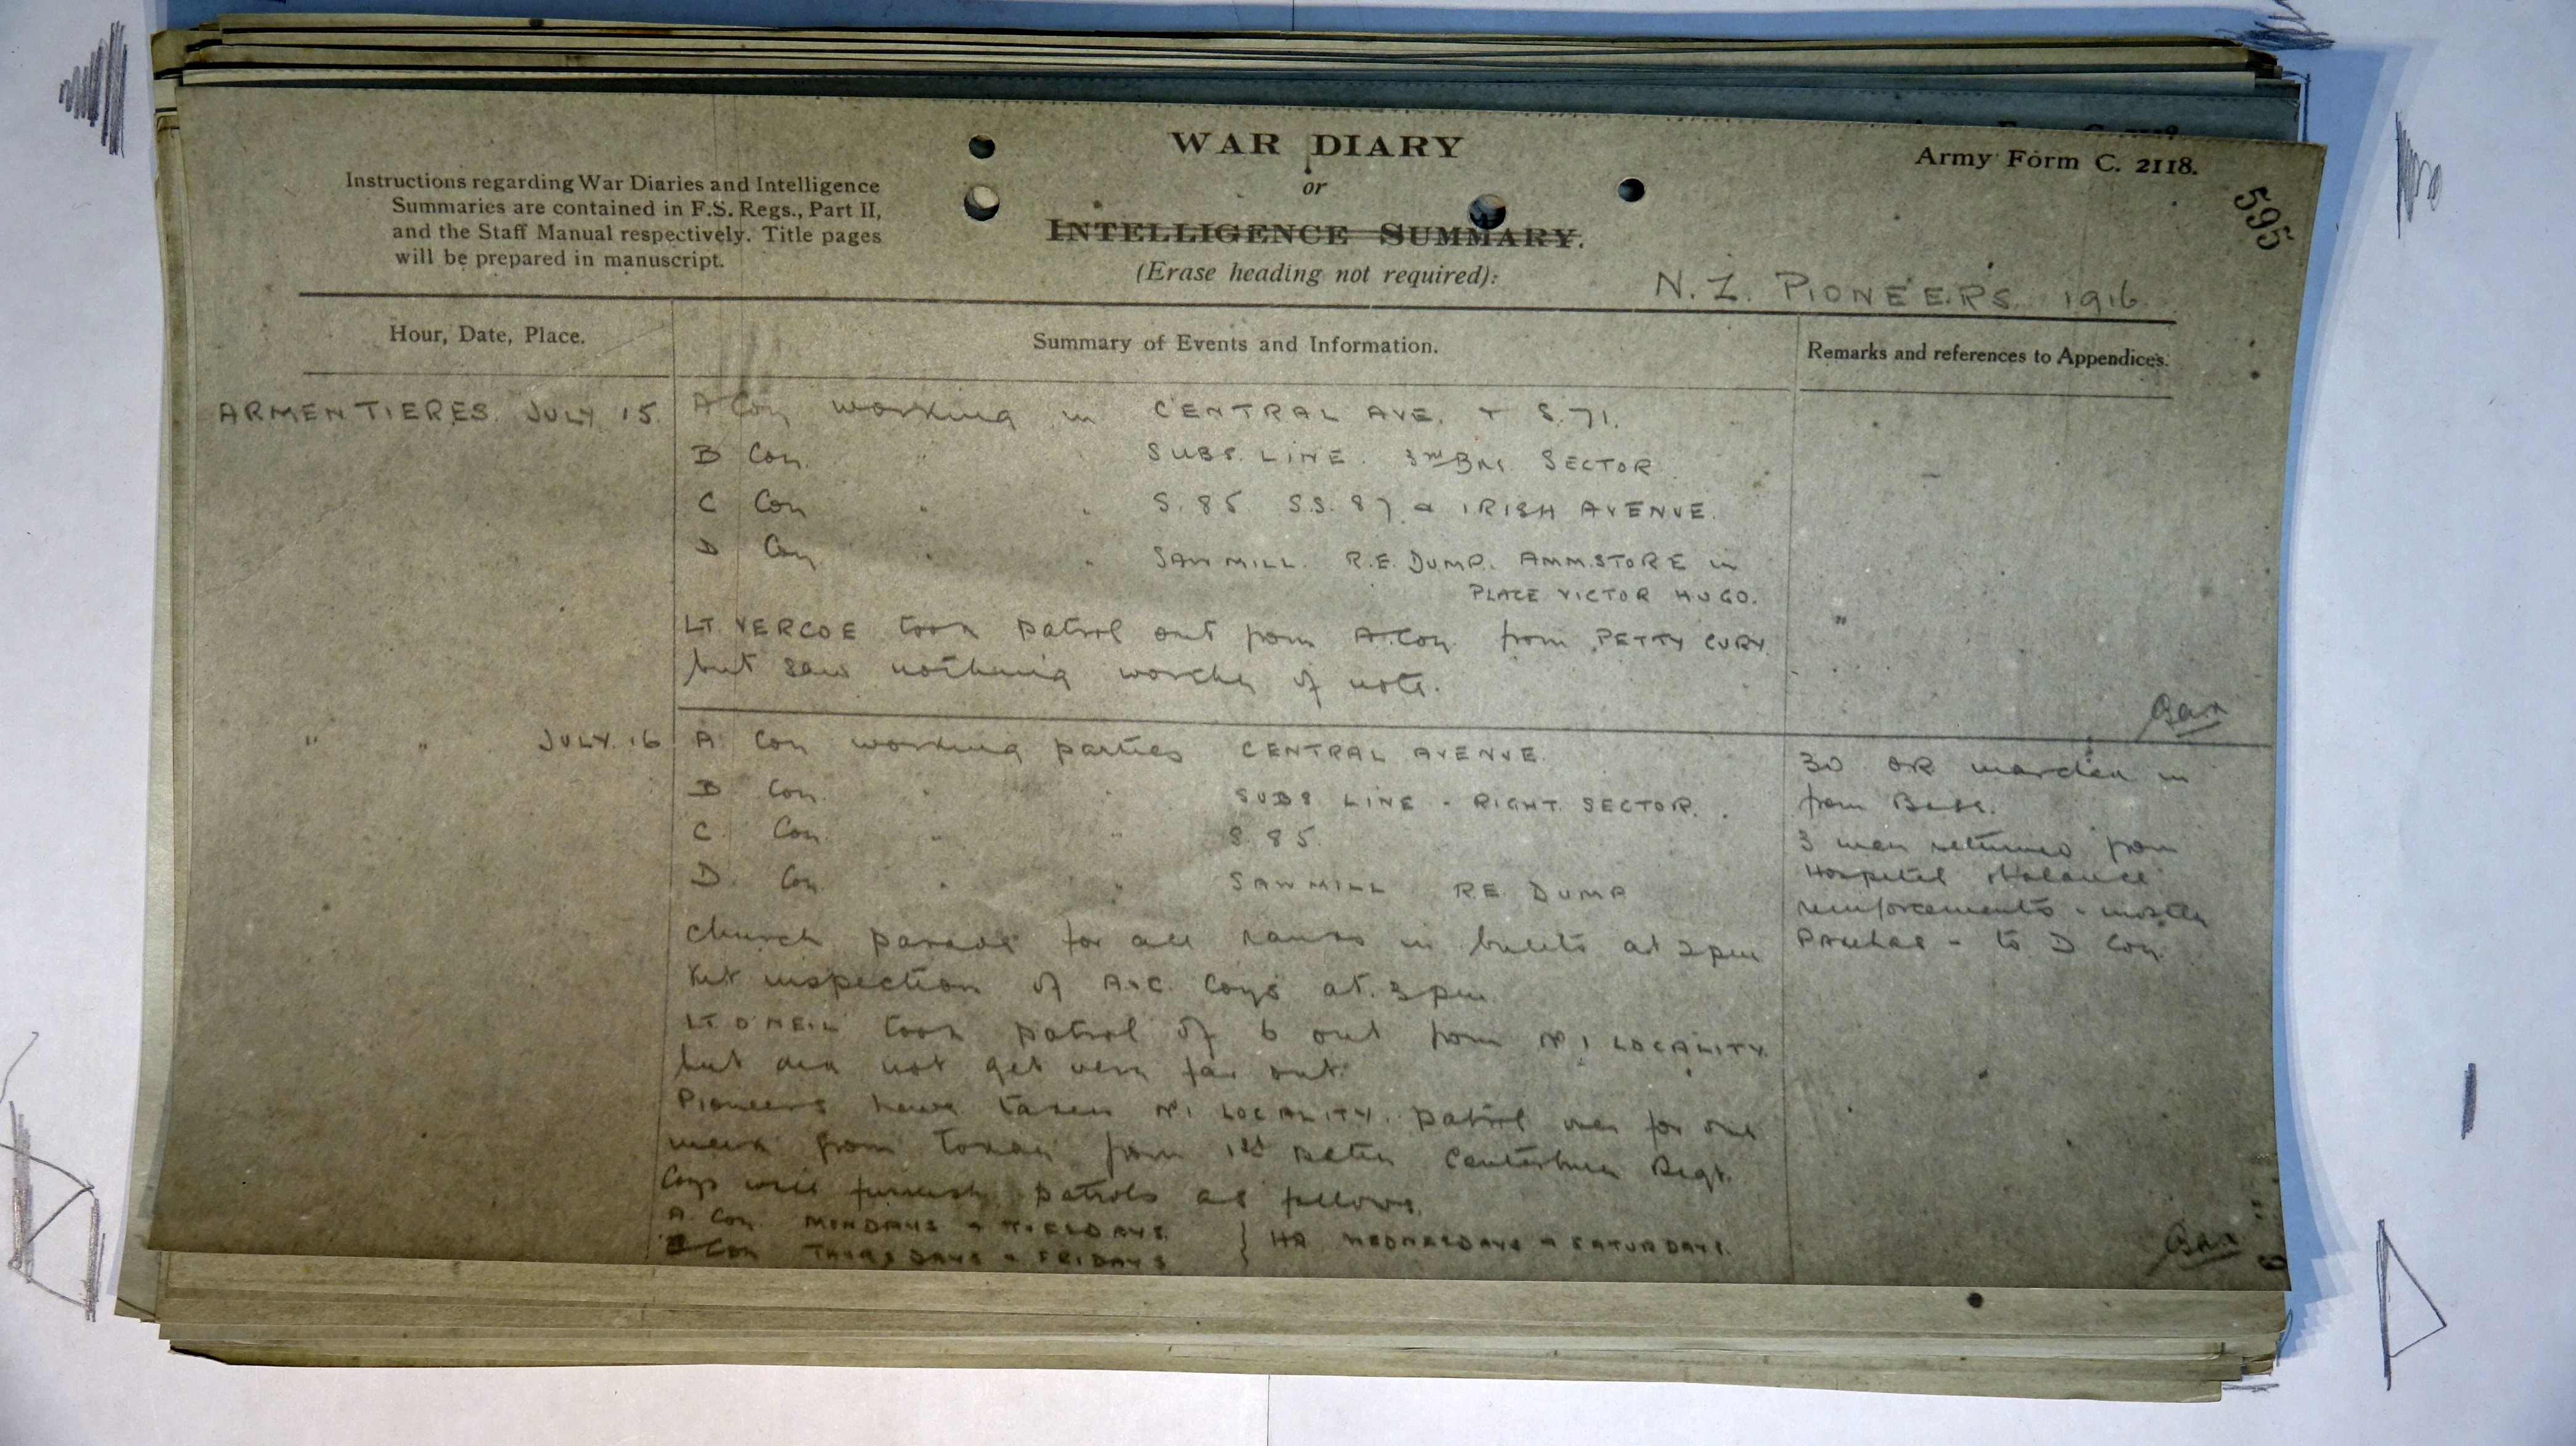 WAR DIARY
or
INTELLIGENCE SUMMARY.
(Erase heading not required).
Army Form C. 2118.
595
Instructions regarding War Diaries and Intelligence
Summaries are contained in F.S. Regs., Part II,
and the Staff Manual respectively. Title pages
will be prepared in manuscript.
N.Z. PIONEERS 1916
Hour, Date, Place.
Summary of Events and Information.
Remarks and references to Appendices.
ARMENTIERES. JULY 15.
A Coy working in CENTRAL AVE. + S.71.
B Coy " SUBS. LINE. 3rd Bde. SECTOR
C Coy " " S.85 S.S.87 & IRISH AVENUE.
D Coy " " SAWMILL. R.E. DUMP. AMM. STORE in
PLACE VICTOR HUGO.
LT. VERCOE took patrol out from A Coy from PETTY CURY
but saw nothing worthy of note.
" " JULY 16
A Coy working parties CENTRAL AVENUE
B Coy " " SUBS LINE - RIGHT SECTOR.
C. Coy " " S.85.
D. Coy " " SAWMILL R.E. DUMP
Church parade for all ranks in billets at 2 pm
Kit inspection of A & C. Coys at 3 pm.
LT. O'NEIL took patrol of 6 out from No 1 LOCALITY.
but did not get very far out.
Pioneers have taken No 1 LOCALITY. patrol over for one
week from today from 1st Battn Canterbury Regt.
Coys will furnish patrols as follows.
A. Coy MONDAYS & TUESDAYS.
Coy THURSDAYS & FRIDAYS
} HQ WEDNESDAYS & SATURDAYS.
30 OR marched in
from Base.
3 men returned from
Hospital & balance
reinforcements - mostly
Pakehas - to D Coy